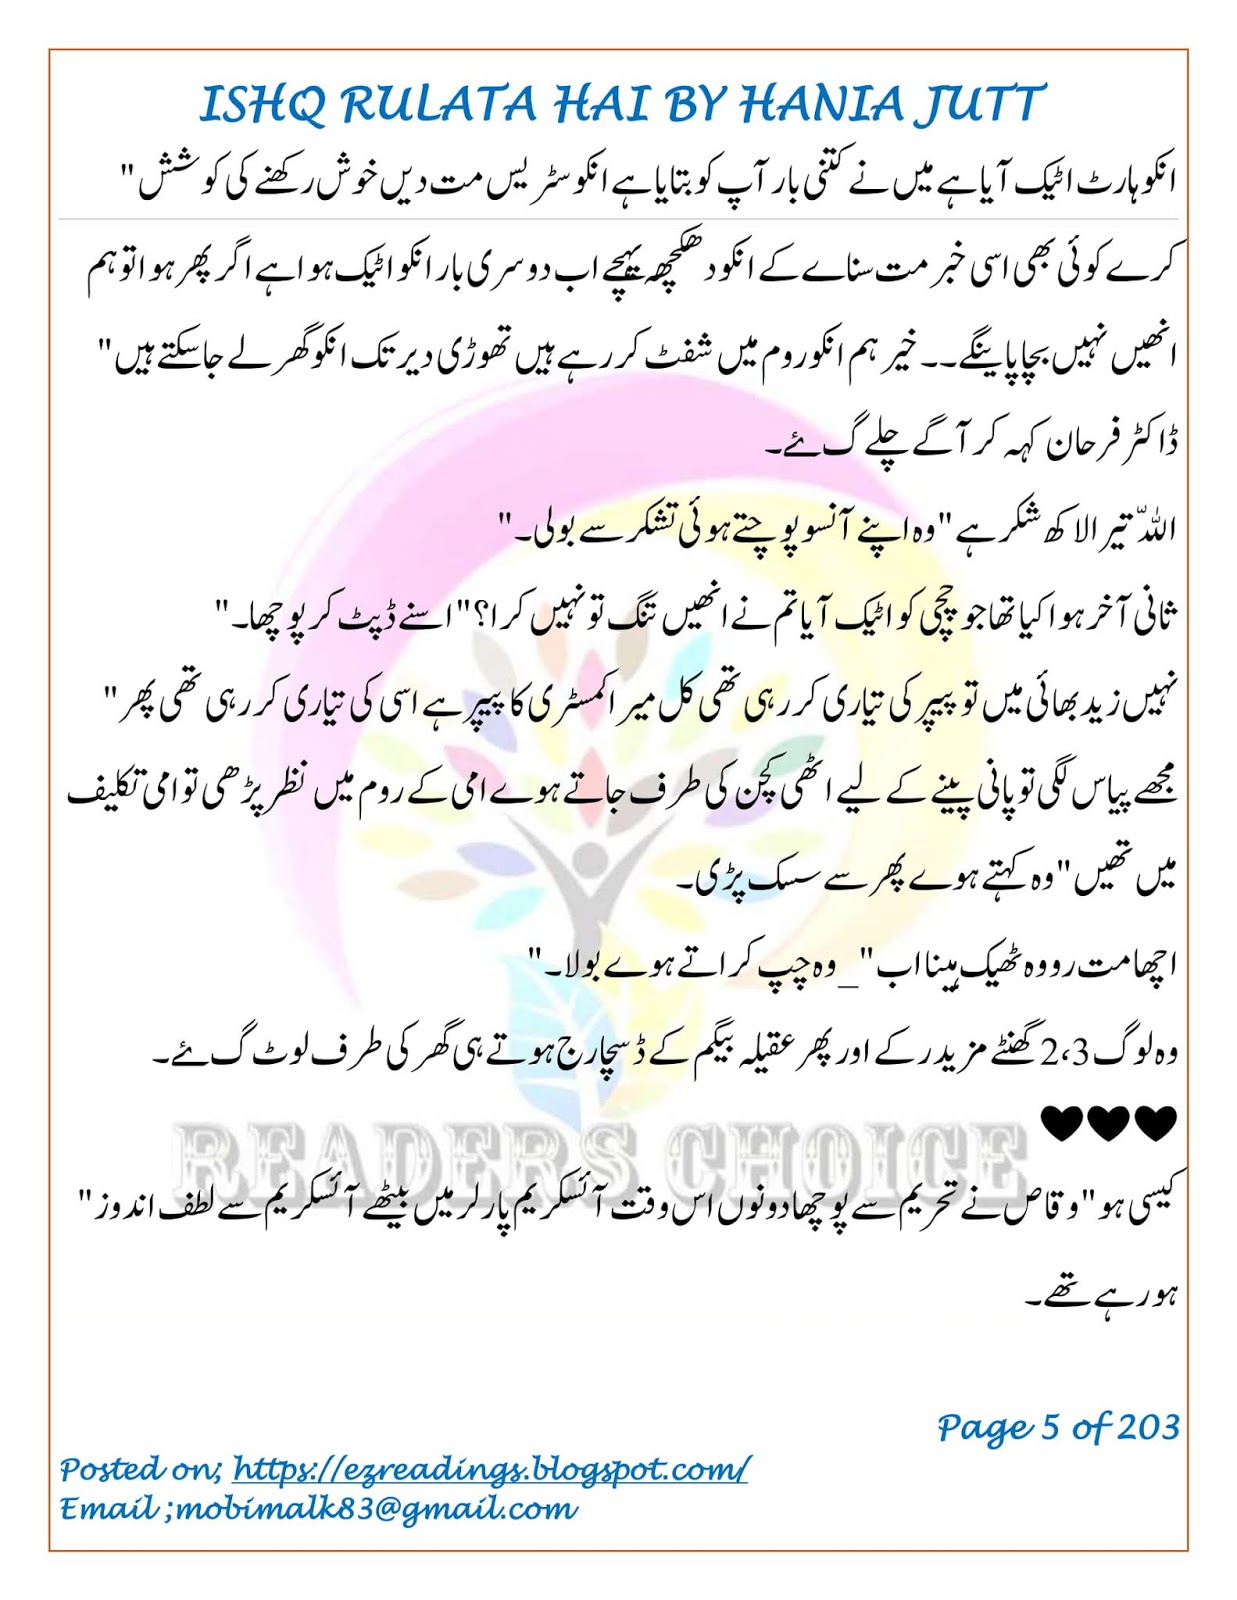 ISHQ RULATA HAI BY HANIA JUTT
انکو ہارٹ اٹیک آیا ہے میں نے کتنی بار آپ کو بتایا ہے انکو سٹریس مت دیں خوش رکھنے کی کوشش"
کرے کوئی بھی اسی خبر مت سناے کے انکو دھکچھ پہچے اب دوسری بار انکو اٹیک ہوا ہے اگر پھر ہوا تو ہم
انھیں نہیں بچا پاینگے۔۔ خیر ہم انکو روم میں شفٹ کر رہے ہیں تھوڑی دیر تک انکو گھر لے جا سکتے ہیں"
ڈاکٹر فرحان کہہ کر آگے چلے گۓ۔
اللہ تیرا لاکھ شکر ہے "وہ اپنے آنسو پوچتے ہوئی تشکر سے بولی۔"
ثانی آخر ہوا کیا تھا جو چچی کو اٹیک آیا تم نے انھیں تنگ تو نہیں کرا؟"اسنے ڈپٹ کر پوچھا۔"
نہیں زید بھائی میں تو پیپر کی تیاری کر رہی تھی کل میرا کمسٹری کا پیپر ہے اسی کی تیاری کر رہی تھی پھر"
مجھے پیاس لگی تو پانی پینے کے لیے اٹھی کچن کی طرف جاتے ہوے امی کے روم میں نظر پڑھی تو امی تکلیف
میں تھیں"وہ کہتے ہوے پھر سے سسک پڑی۔
اچھا مت رو وہ ٹھیک ہینا اب"_وہ چپ کراتے ہوے بولا۔"
وہ لوگ 2،3 گھنٹے مزید رکے اور پھر عقیلہ بیگم کے ڈسچارج ہوتے ہی گھر کی طرف لوٹ گۓ۔
♥♥♥
READERS CHOICE
کیسی ہو"وقاص نے تحریم سے پوچھا دونوں اس وقت آئسکریم پارلر میں بیٹھے آئسکریم سے لطف اندوز"
ہو رہے تھے۔
Page 5 of 203
Posted on; https://ezreadings.blogspot.com/
Email ;mobimalk83@gmail.com